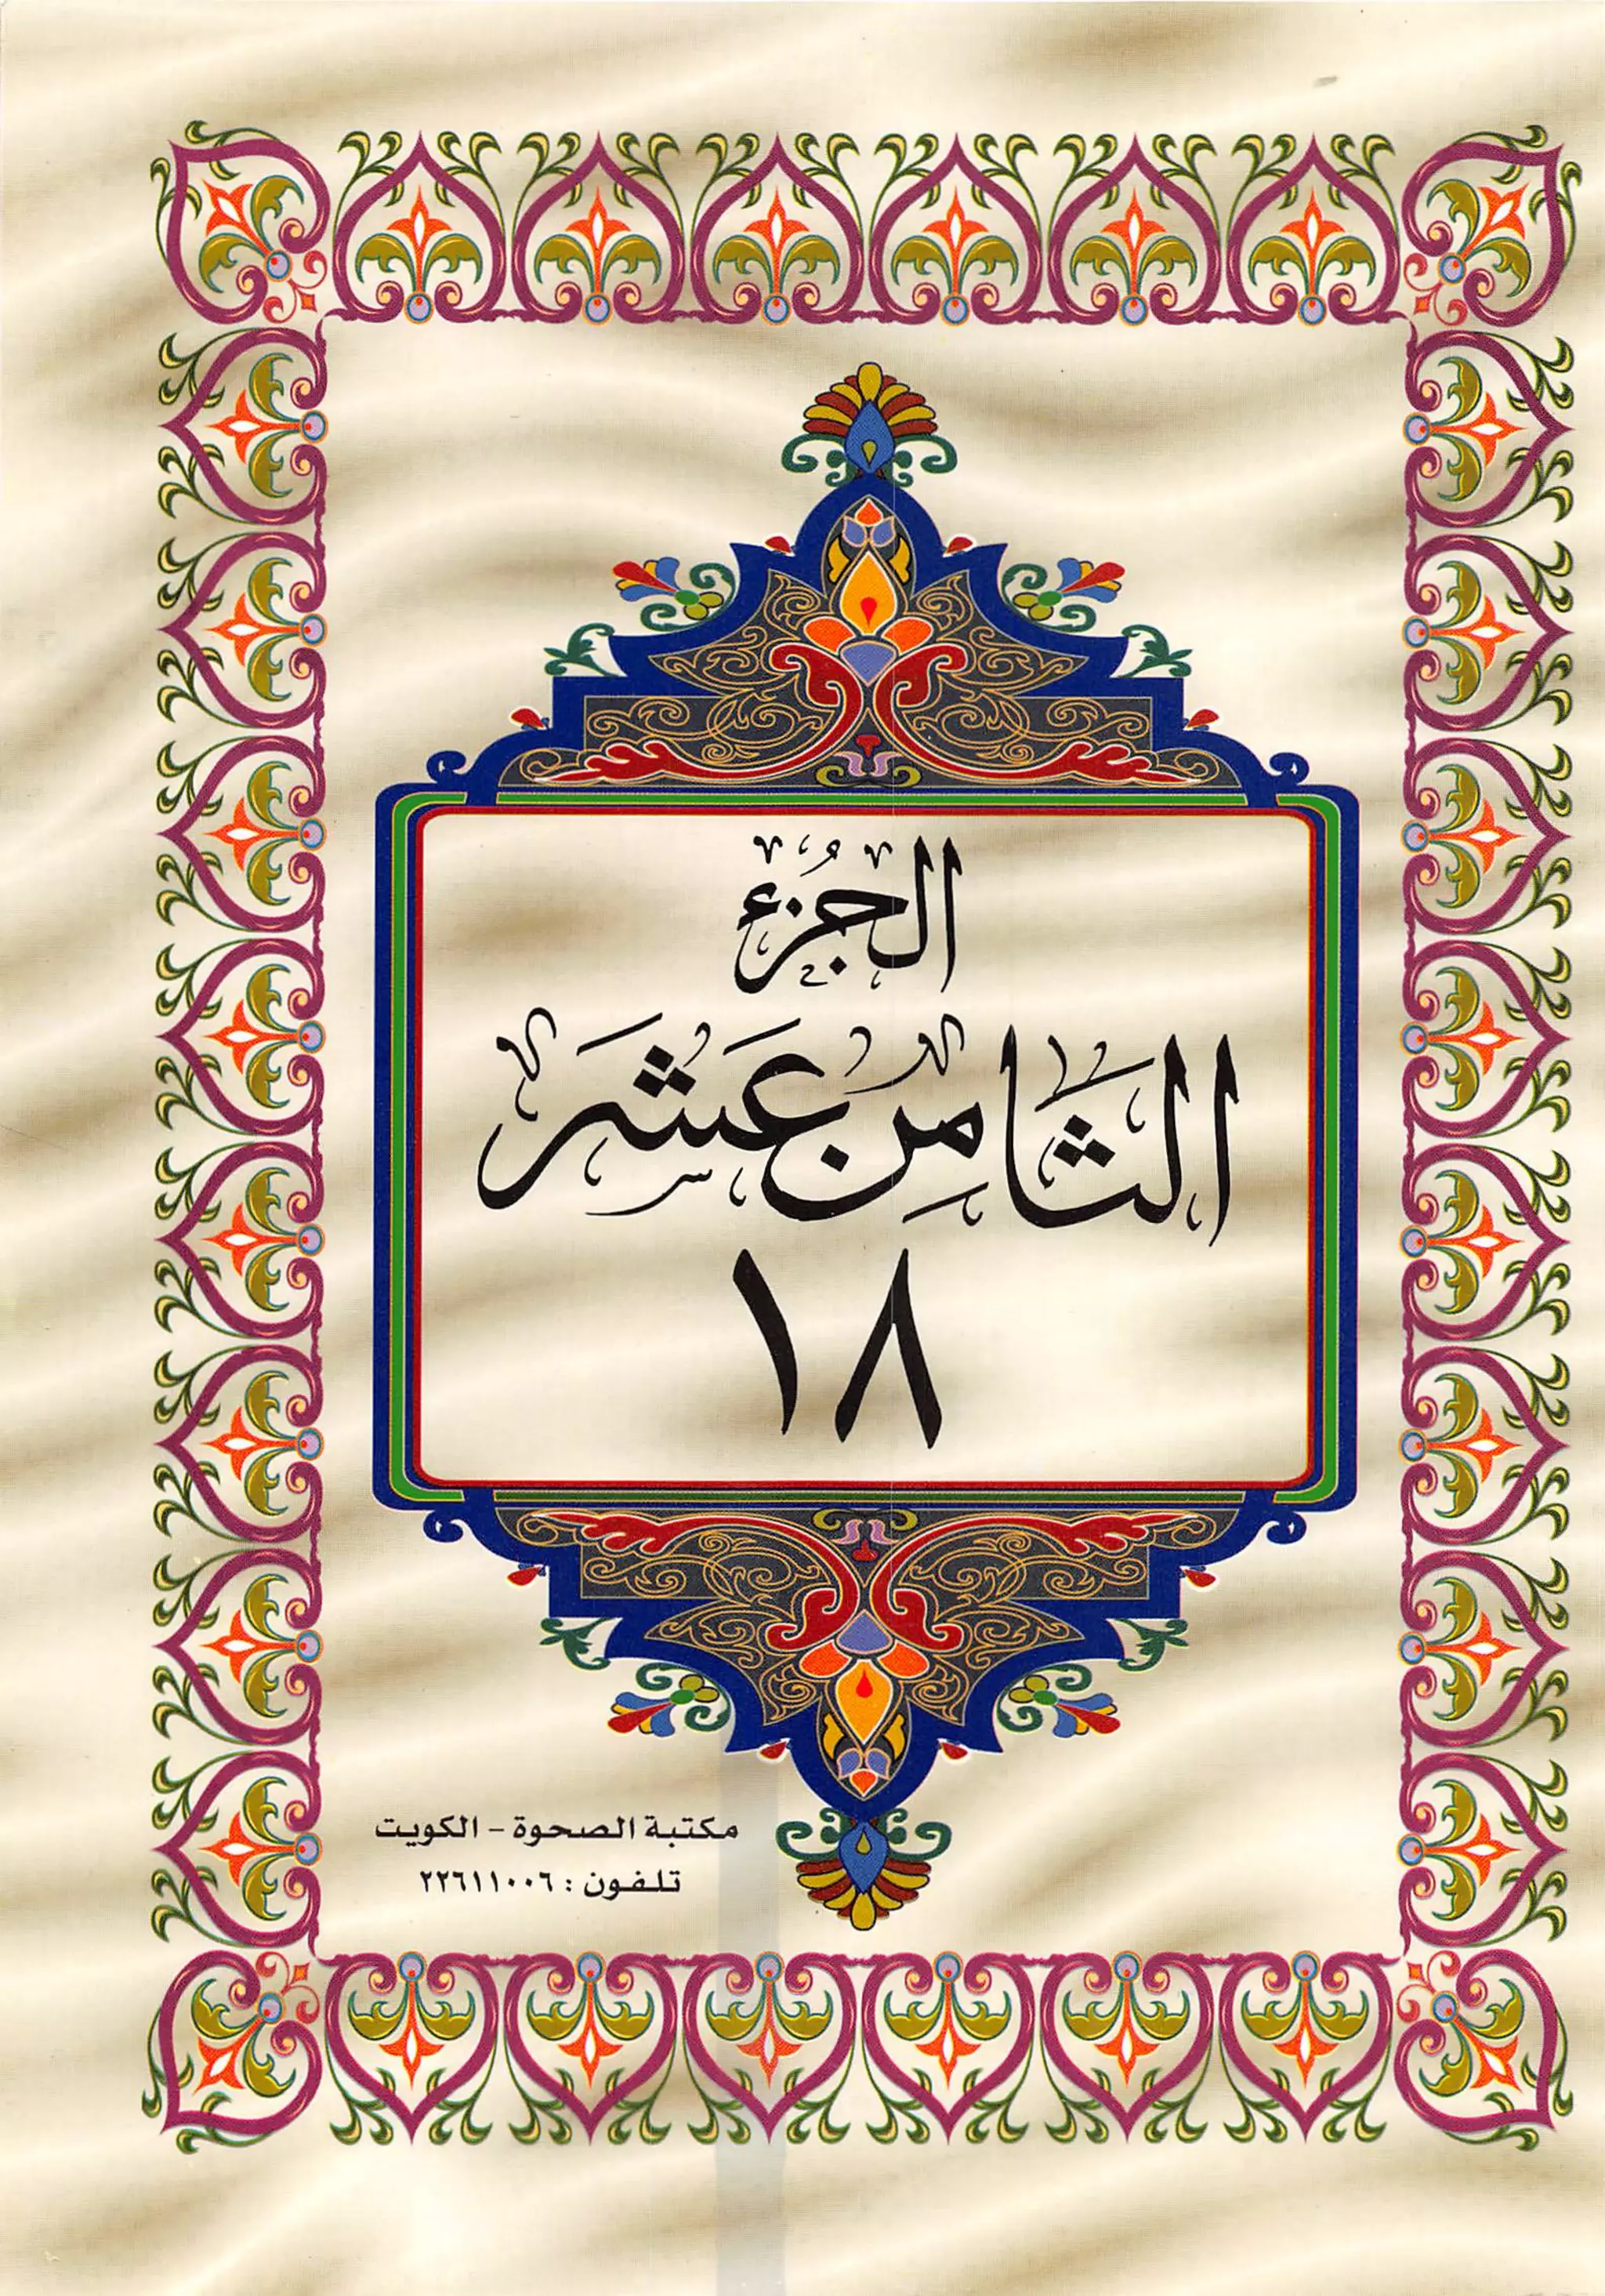 الجزء
الثامن عشر
١٨
مكتبة الصحوة - الكويت
تلفون : ٢٢٦١١٠٠٦